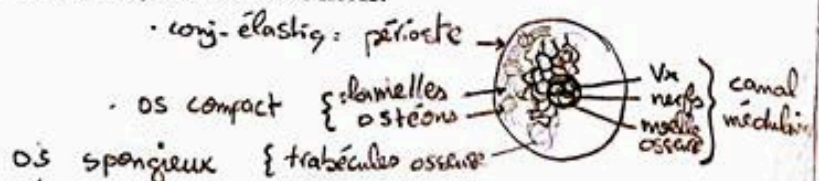 · conj-élastiq: périoste
· os compact { lamelles
{ ostéons
os spongieux { trabécules osseuse
Vx
nerfs
moelle
osseuse
} canal
médulaire